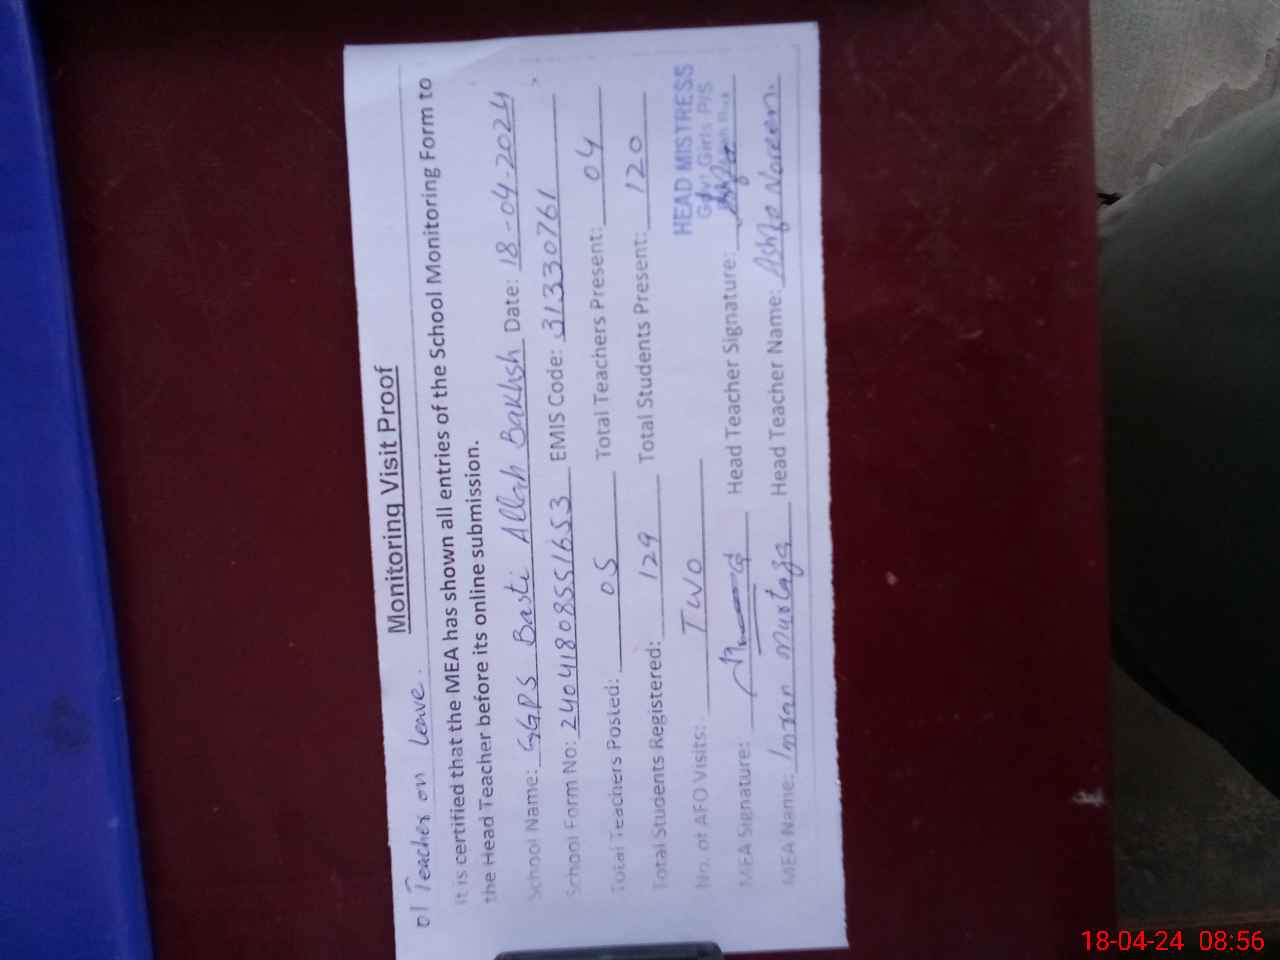 01 Teacher on leave.
Monitoring Visit Proof
It is certified that the MEA has shown all entries of the School Monitoring Form to
the Head Teacher before its online submission.
School Name: GGPS Basti Allah Bakhsh Date: 18-04-2024
School Form No: 240418085551653 EMIS Code: 31330761
Total Teachers Posted: 05 Total Teachers Present: 04
Total Students Registered: 129 Total Students Present: 120
No. of AFO Visits: TWO
HEAD MISTRESS
Govt Girls P/S
MEA Signature: Head Teacher Signature:
MEA Name: Imran Murtaza Head Teacher Name: Ashfa Noreen.
18-04-24 08:56